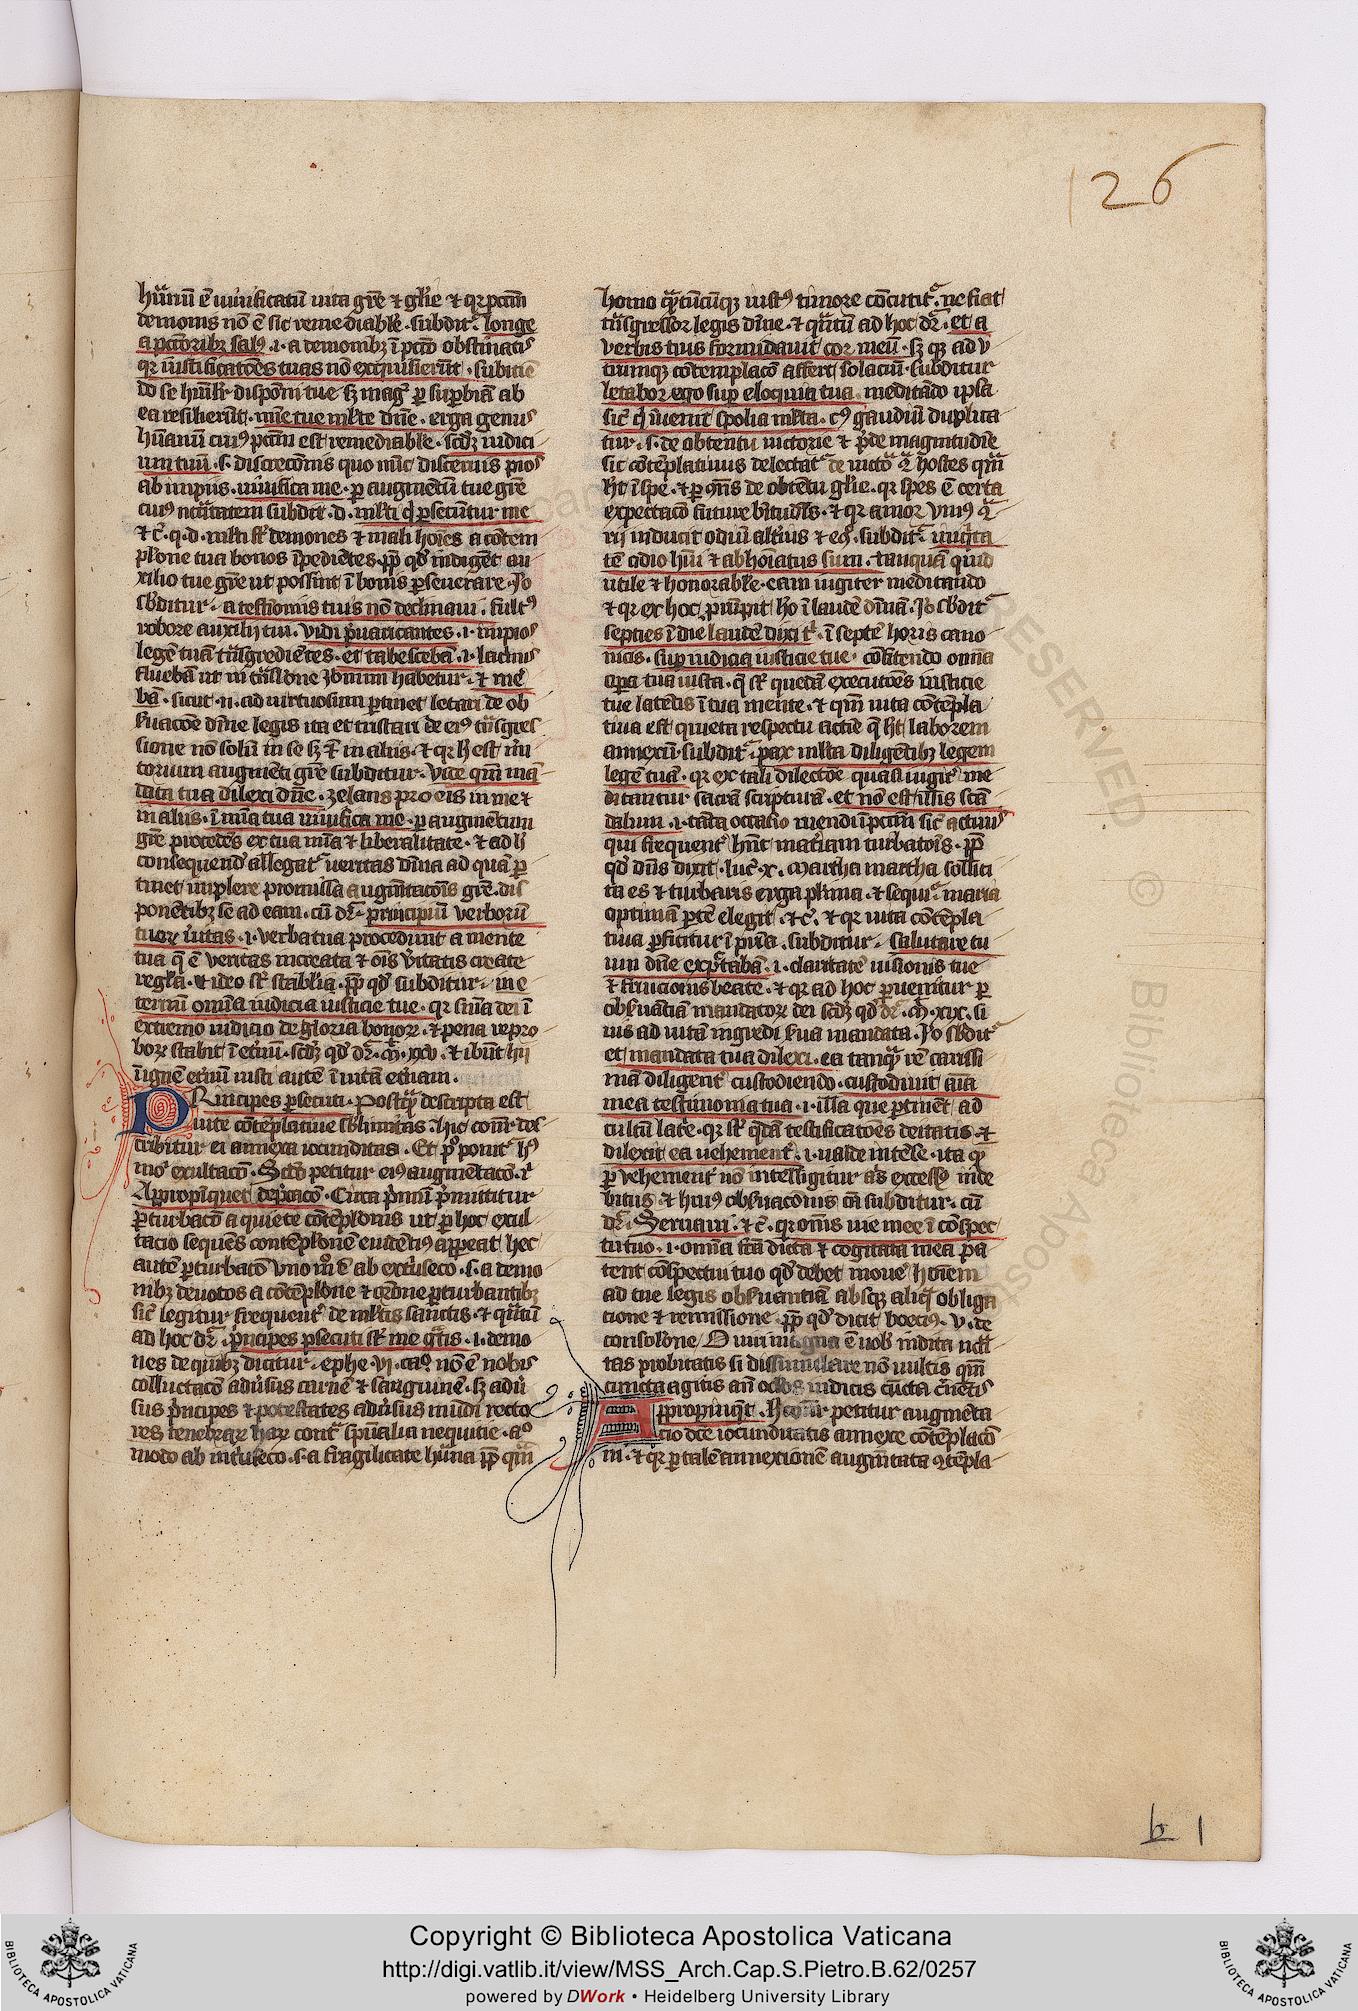 126
hũanũ ẽ uiuificatũ uita grẽ ⁊ glĩe ⁊ qꝛ pctm̃
demonis nõ ẽ sic remediabl̃e · subdit᷑ · longe
a pctõribꝫ salꝰ · i · a demonibꝫ ĩ pctõ obstinatis
qꝛ iustificatões tuas nõ exquisierũt · subicieñ
do se hũilr̃ disponi tue sꝫ mag᷑ ꝑ suꝑbiã ab
ea resilierũt · mĩe tue ml̃te dñe · erga genus
hũanũ cuiꝰ pctm̃ est remediabl̃e · scd̃ꝫ iudici
um tuũ · s · discrecõnis quo nũc discernis pios
ab impiis · uiuifica me · ꝑ augmẽtũ tue grẽ
cuiꝰ nccĩtatem subdit · d · ml̃ti q̃ ꝑsecuntur me
⁊ c̃ · q · d · ml̃ti sũt demones ⁊ mali hoĩes a cõtem
pl̃one tua bonos ĩpediẽtes · ꝓp̃ qd̃ indigẽt au
xilio tue grẽ ut possint ĩ bonis ꝑseuerare · Jõ
sb̃ditur · a testĩoniis tuis nõ declinaui · fultꝰ
robore auxilij tui · vidi p̃uaricantes · i · impios
legẽ tuã trãsgrediẽtes · et tabescebã · i · lac̃mis
fluebã ut in trãsl̃one Jeronimi habetur · ⁊ me
bã · sicut · n · ad uirtuosum ꝑtinet letari de ob
seruacõe dĩne legis ita et tristari de eiꝰ trãsgres
sione nõ solũ in se sꝫ ⁊ in aliis · ⁊ qꝛ h̃ est m̃i
torium augmẽti grẽ subditur · vide qm̃ mã
data tua dilexi dñe · zelans pro eis in me ⁊
in aliis · ĩ mĩa tua uiuifica me · ꝑ augmẽtum
grẽ procedẽs ex tua mĩa ⁊ liberalitate · ⁊ ad h̃
consequend̃ allegat᷑ veritas dĩuina ad quã ꝑ
tinet implere promissa augmẽtacõis grẽ dis
ponẽtibꝫ se ad eam · cũ dr̃ · principiũ verborũ
tuoꝝ ũitas · i · verba tua procedunt a mente
tua q̃ ẽ veritas increata ⁊ oĩs ũitatis create
regl̃a · ⁊ ideo sũt stabl̃ia · ꝓp̃ qd̃ subditur · in e
ternũ omĩa iudicia iusticie tue · qꝛ sñia dei ĩ
extremo iudicio de gloria bonoꝝ · ⁊ pena repro
boꝝ stabit ĩ et̃nũ · scd̃ꝫ qd̃ dr̃ · M̃ · xxv · ⁊ ibũt hii
ĩ ignẽ et̃nũ iusti autẽ ĩ uitã et̃nam ·
PRincipes ꝑsecuti · Postq̃ descripta est
uite cõtẽplatiue sb̃limitas · hic cõñr des
cribitur ei annexa iocunditas · Et pᵒ ponit᷑ hꝰ
moꝰ exultacõ · Scd̃o petitur eiꝰ augmẽtacõ · i᷑
Appropinquet dep̃cacõ · Circa p̃mũ p̃mittitur
ꝑturbacõ a quiete cõtẽpl̃onis ut ꝑ hoc exul
tacio sequẽs contẽpl̃onẽ euidẽtiꝰ appareat hec
autẽ ꝑturbacõ vno mᵒ ẽ ab extr̃inseco · s · a demo
nibꝫ deuotos a cõtẽpl̃one ⁊ oꝛõne ꝑturbantibꝫ
sic̃ legitur frequent᷑ de ml̃tis sanctis · ⁊ q̃tũ
ad hoc dr̃ · p̃ncipes ꝑsecuti sũt me g̃tis · i · demo
nes de quibꝫ dicitur · ephe · vi · caᵒ · nõ ẽ nobis
colluctacõ adũsus carnẽ ⁊ sanguinẽ · sꝫ adũ
sus p̃ncipes ⁊ potestates adũsus mũdi recto
res tenebraꝝ haꝝ cont᷑ sp̃ualia nequitie · aᵒ
modo ab intr̃inseco · s · a fragilitate hũana ꝓp̃ quã
homo q̃tũcũqꝫ iustꝰ timore cõcutit᷑ · ne fiat
trãsgressor legis dĩne · ⁊ q̃tũ ad hoc dr̃ · et a
verbis tuis formidauit cor meũ · sꝫ qꝫ ad v
trũqꝫ cõtemplacõ affert solaciũ · subditur
letabor ego sup eloquia tua · meditãdo ipsa
sic̃ q̃ inuenit spolia ml̃ta · cꝰ gaudiũ duplica
tur · s · de obtentu uictorie ⁊ p̃de magnitudĩe
sic cõtẽplatiuus delectat᷑ de uictõ 9᷑ hostes quã
hʒ ĩ spe · ⁊ ꝑ 9ñs de obtẽtu glĩe · qꝛ spes ẽ certa
expectacõ future bt̃itudĩs · ⁊ qꝛ amor vniꝰ 9᷑
rij inducit odiũ altĩus ⁊ eᵒ · subdit᷑ · iniq̃ta
tẽ odio hũi ⁊ abhoĩatus sum · tanquã quid
utile ⁊ honorabl̃e · eam iugiter meditando
⁊ qꝛ ex hoc prũpit hõ ĩ laudẽ diũnã · Jõ sb̃dit᷑
septies ĩ die laudẽ dixi t᷑ · ĩ septẽ horis cano
nicis · sup iudicia iusticie tue · cõfitendo omĩa
oꝑa tua iusta · q̃ sũt quedã executões iusticie
tue latẽtis ĩ tua mente · ⁊ qm̃ uita cõtẽpla
tiua est quieta respectu actiẽ q̃ hʒ laborem
annexũ · subdit᷑ · pax ml̃ta diligẽtibꝫ legem
legẽ tuã · qꝛ ex tali dilectõe quasi iugit᷑ me
ditantur sacrã scripturã · et nõ est illis scã
dalum · i · tãta occasio ruendi ĩ pctm̃ sic̃ actiuis
qui frequent᷑ hñt mat̃iam turbatõis · ꝓp̃
qd̃ dñs dixit · luc̃ · x · Martha martha sollici
ta es ⁊ turbaris erga pl̃ima · ⁊ sequit᷑ maria
optimã ꝑtẽ elegit · ⁊ c̃ · ⁊ qꝛ uita cõtẽpla
tiua ꝑficitur ĩ pr̃ia · subditur · salutare tu
um dñe exp̃tabã · i · claritatẽ uisionis tue
⁊ fruicionis beate · ⁊ qꝛ ad hoc ꝑuenitur ꝑ
obseruãtiã mandatoꝝ dei scd̃ꝫ qd̃ dr̃ · M̃ · xix · si
uis ad uitã ingredi serua mandata · Jõ sb̃dit᷑
et mandata tua dilexi · ea tanq̃ rẽ carissi
mã diligent᷑ custodiendo · custodiuit aĩa
mea testimonia tua · i · illa que ꝑtinẽt ad
cultũ lat̃e · qꝛ sũt q̃dã testificatões deitatis · ⁊
dilexit ea uehement᷑ · i · ualde intẽse · ita qꝫ
ꝑ vehement᷑ nõ intelligitur aĩs excessꝰ inde
bitus · ⁊ huiꝰ obseruacõnis cã subditur · cũ
dr̃ · Seruaui · ⁊ c̃ · qꝛ om̃s uie mee ĩ cõspec
tu tuo · i · omĩa fcã dicta ⁊ cogitata mea pa
tent cõspectui tuo qd̃ debet mouẽ hoĩem
ad tue legis obseruantiã absqꝫ aliq̃ obliga
tione ⁊ remissione · ꝓp̃ qd̃ dicit boeciꝰ · v · de
consol̃one · O uiri magna ẽ uob̃ indita nccĩ
tas probitatis si dissimulare nõ uultis qm̃
cuncta agitis añ oclos iudicis cũcta c̃nẽtis
Appropinq̃t · hic cõñr petitur augmẽta
cio dcẽ iocunditatis annexe cõtẽplacõ
ni · ⁊ qꝛ ꝑ talẽ annexionẽ augmẽtata 9tẽpla
b 1
RESERVED
© Biblioteca Apost
Copyright © Biblioteca Apostolica Vaticana
http://digi.vatlib.it/view/MSS_Arch.Cap.S.Pietro.B.62/0257
powered by DWork • Heidelberg University Library
BIBLIOTECA APOSTOLICA VATICANA
BIBLIOTECA APOSTOLICA VATICANA